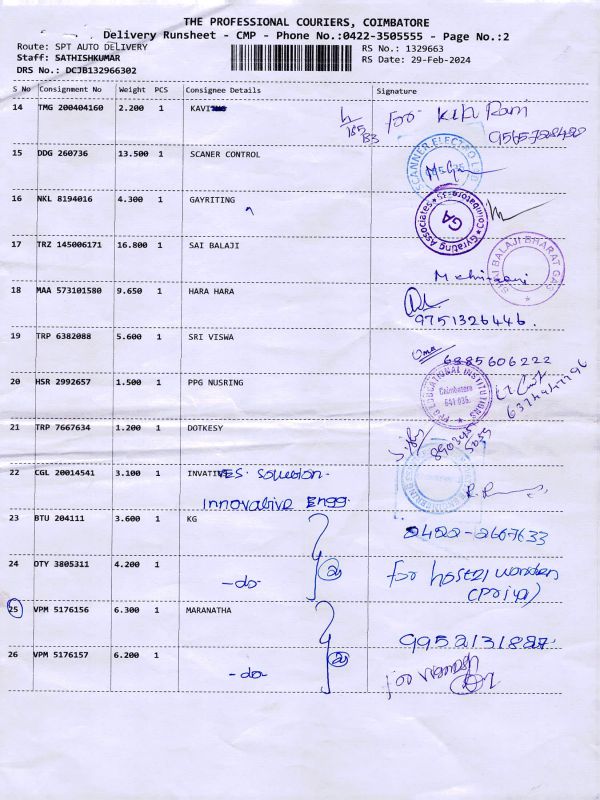 THE PROFESSIONAL COURIERS, COIMBATORE
Delivery Runsheet - CMP - Phone No.:0422-3505555 - Page No.:2
Route: SPT AUTO DELIVERY RS No.: 1329663
Staff: SATHISHKUMAR RS Date: 29-Feb-2024
DRS No.: DCJB132966302
S No Consignment No Weight PCS Consignee Details Signature
14 TMG 200404160 2.200 1 for
15 DDG 260736 13.500 1 SCANER CONTROL
16 NKL 8194016 4.300 1 GAYRITING
Gyrating Associates Coimbatore-35 GA
17 TRZ 145006171 16.800 1 SAI BALAJI
SRI BALAJI BHARAT GAS
18 MAA 573101580 9.650 1 HARA HARA
9751326446.
19 TRP 6382088 5.600 1 SRI VISWA
Uma 6885606222
20 HSR 2992657 1.500 1 PPG NUSRING
PPG EDUCATIONAL INSTITUTIONS Coimbatore 641 035.
21 TRP 7667634 1.200 1 DOTKESY
22 CGL 20014541 3.100 1 INVATIVES Solution
Innovative Engg.
23 BTU 204111 3.600 1 KG
0422-2667633
24 OTY 3805311 4.200 1 -do- (2) for hostel warden
(Priya)
25 VPM 5176156 6.300 1 MARANATHA
9952131887
26 VPM 5176157 6.200 1 -do- (2)